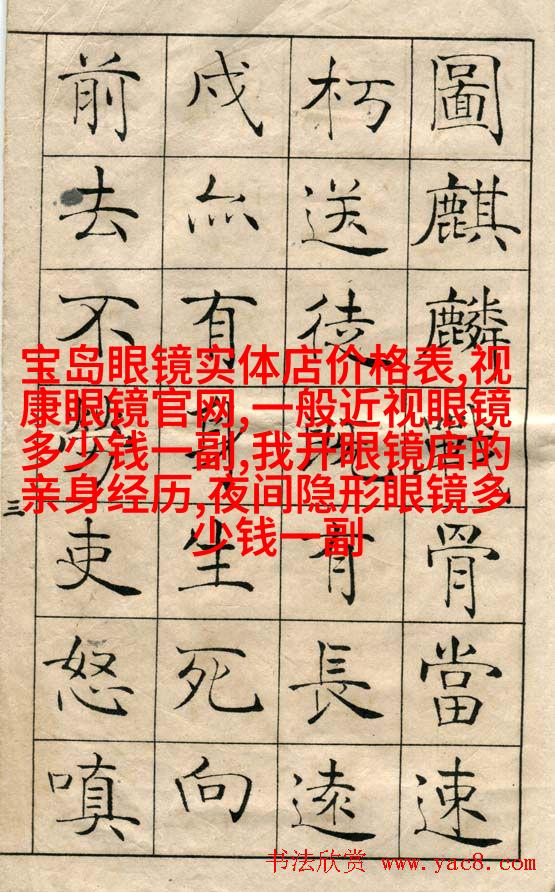 圖麒麟戰骨當速
朽送徒既有長遠
戍亦有生死向
前去不勞吏怒嗔
三
宝岛眼镜实体店价格表,视
康眼镜官网,一般近视眼镜
多少钱一副,我开眼镜店的
亲身经历,夜间隐形眼镜多
少钱一副
书法欣赏 www.yac8.com